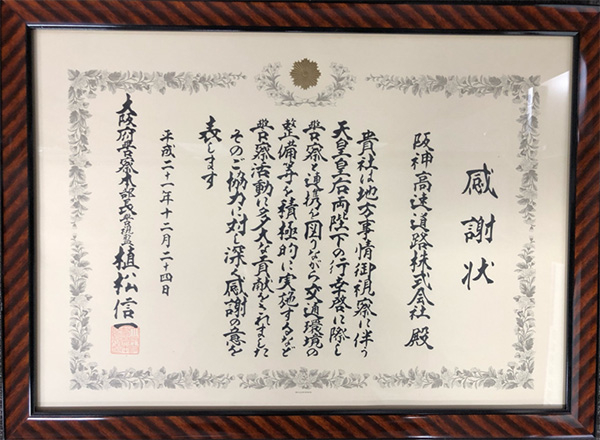 感謝状
阪神高速道路株式会社 殿
貴社は地方事情御視察に伴う
天皇皇后両陛下の行幸啓に際し
警察と連携を図りながら交通環境の
整備等を積極的に実施するなど
警察活動に多大な貢献をされました
そのご協力に対し深く感謝の意を
表します
平成二十一年十二月二十四日
大阪府警察本部長警視監 植松信一